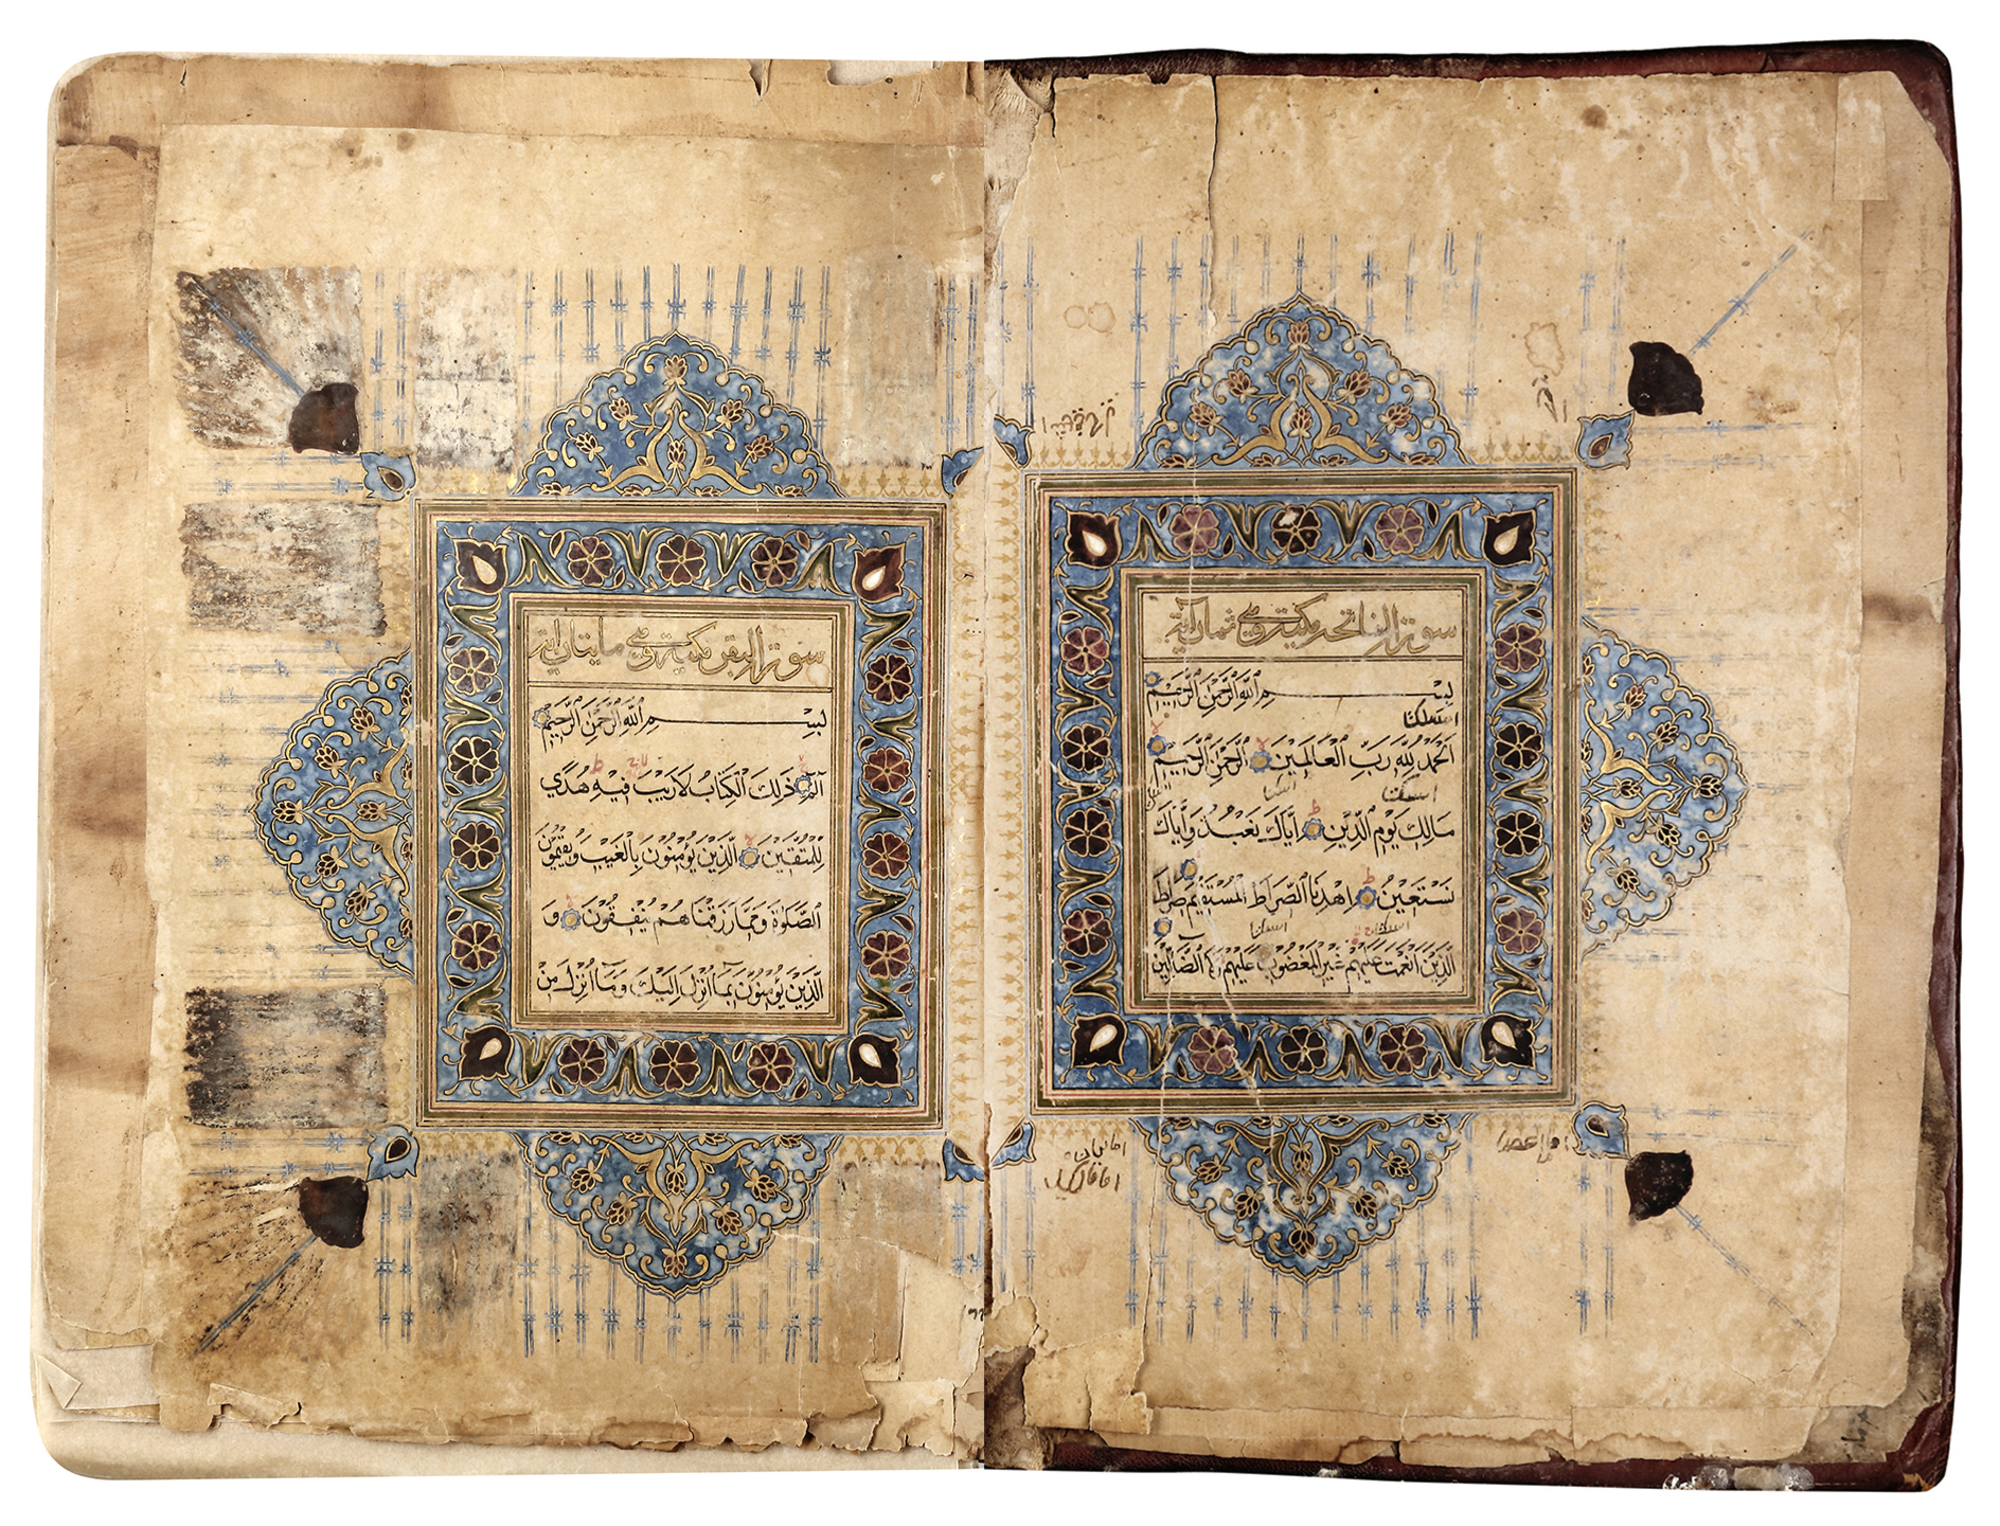 سورة الفاتحة مكية وهي ثمان آية
بِسْمِ اللّٰهِ الرَّحْمٰنِ الرَّحِيْمِ
اَلْحَمْدُ لِلّٰهِ رَبِّ الْعَالَمِيْنَ الرَّحْمٰنِ الرَّحِيْمِ
مَالِكِ يَوْمِ الدِّيْنِ اِيَّاكَ نَعْبُدُ وَاِيَّاكَ
نَسْتَعِيْنُ اِهْدِنَا الصِّرَاطَ الْمُسْتَقِيْمَ صِرَاطَ
الَّذِيْنَ اَنْعَمْتَ عَلَيْهِمْ غَيْرِ الْمَغْضُوْبِ عَلَيْهِمْ وَلَا الضَّالِّيْنَ
سورة البقرة مكية وهي مايتان آية
بِسْمِ اللّٰهِ الرَّحْمٰنِ الرَّحِيْمِ
الٓمٓ ذٰلِكَ الْكِتَابُ لَا رَيْبَ فِيْهِ هُدًي
لِلْمُتَّقِيْنَ الَّذِيْنَ يُؤْمِنُوْنَ بِالْغَيْبِ وَيُقِيْمُوْنَ
الصَّلٰوةَ وَمِمَّا رَزَقْنَاهُمْ يُنْفِقُوْنَ وَ
الَّذِيْنَ يُؤْمِنُوْنَ بِمَآ اُنْزِلَ اِلَيْكَ وَمَآ اُنْزِلَ مِنْ